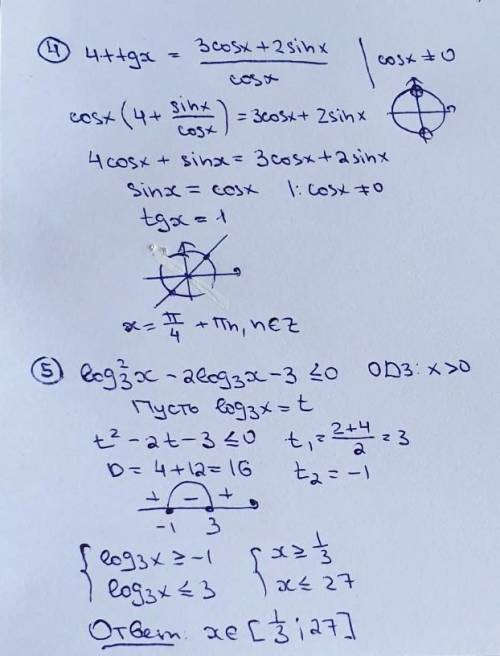 ④ 4+tgx = (3cosx+2sinx)/cosx | cosx ≠ 0
cosx(4+ sinx/cosx) = 3cosx+2sinx
4cosx + sinx = 3cosx+2sinx
sinx = cosx |: cosx ≠ 0
tgx = 1
x = π/4 + πn, n∈Z
⑤ log²₃x - 2log₃x - 3 ≤ 0 ОДЗ: x>0
Пусть log₃x = t
t² - 2t - 3 ≤ 0 t₁ = (2+4)/2 = 3
D = 4+12 = 16 t₂ = -1
+ - +
-1 3
{ log₃x ≥ -1 { x ≥ 1/3
log₃x ≤ 3 x ≤ 27
Ответ: x∈[1/3; 27]